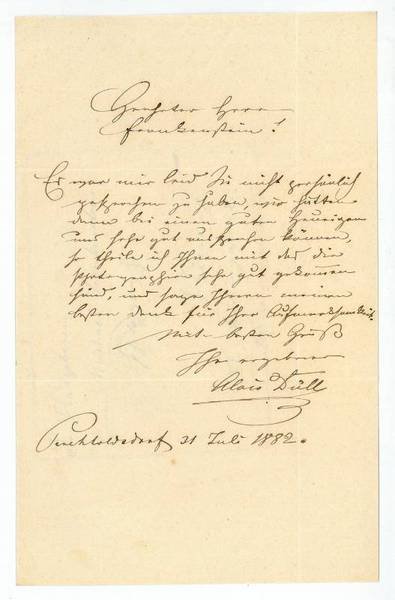 Geehrter Herr
Frankenstein!
Es war mir leid Sie nicht persönlich
gesprochen zu haben, wir hätten
dann bei einen guten Heurigen
uns sehr gut aussprechen können,
so theile ich Ihnen mit das die
Photographien sehr gut gekommen
sind, und sage Ihnen meinen
besten Dank für Ihre Aufmerksamkeit.
Mit besten Gruß
Ihr ergebener
Alois Düll
Perchtoldsdorf 31 Juli 1882.